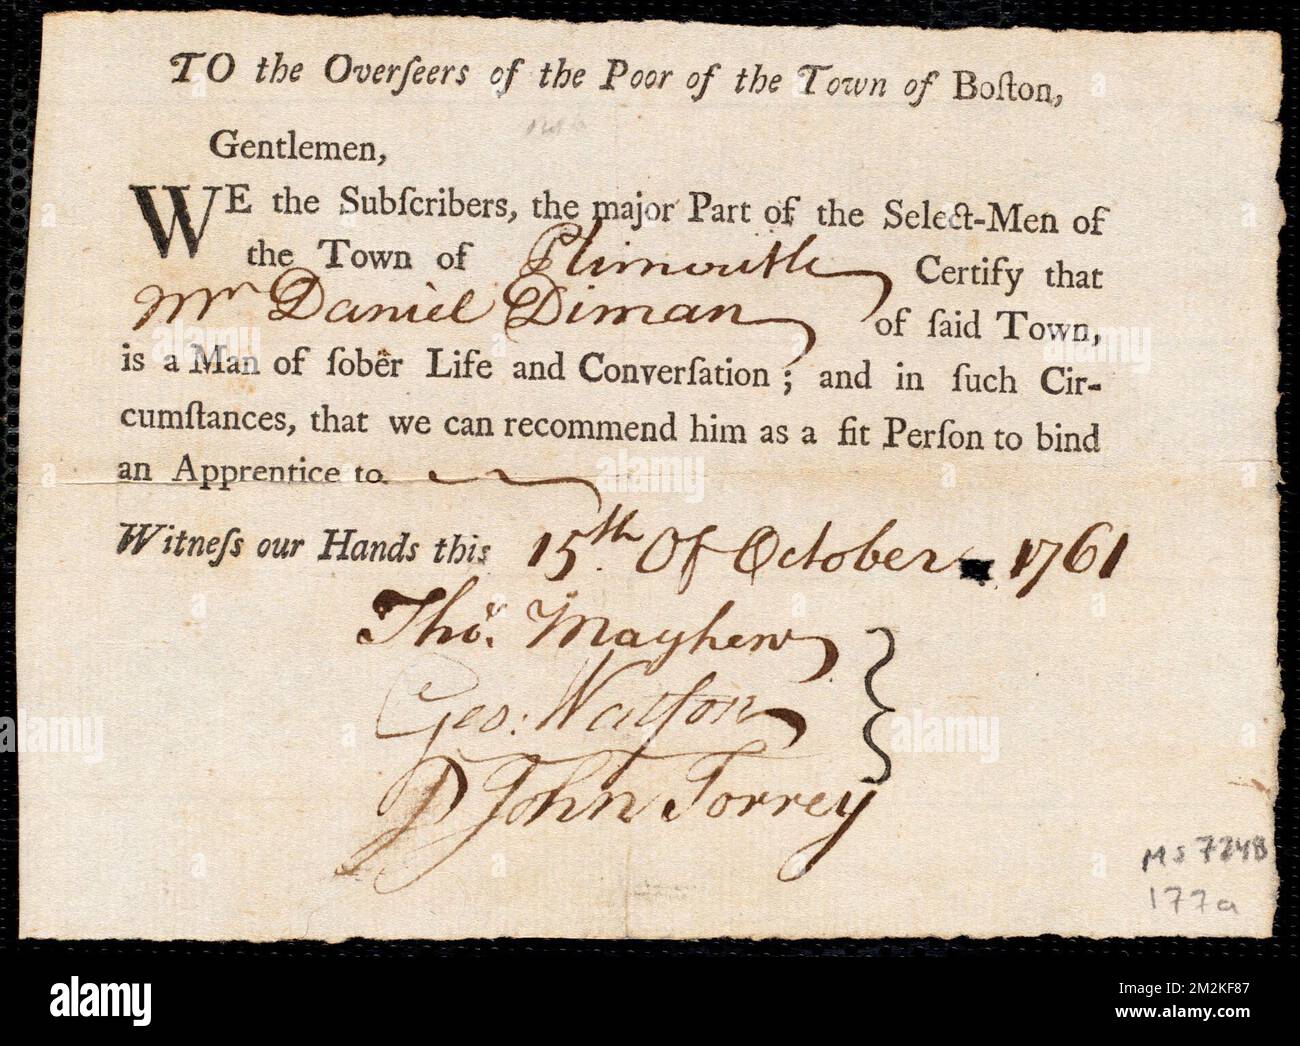 TO the Overſeers of the Poor of the Town of Boſton,
Gentlemen,
WE the Subſcribers, the major Part of the Select-Men of
the Town of Plimouth Certify that
Mr Daniel Diman of ſaid Town,
is a Man of ſober Life and Converſation; and in ſuch Cir-
cumſtances, that we can recommend him as a fit Perſon to bind
an Apprentice to
Witneſs our Hands this 15th Of October 1761
Thos. Mayhew
Geo: Watſon
John Torrey
MS 7248
177a
alamy
Image ID: 2M2KF87
www.alamy.com